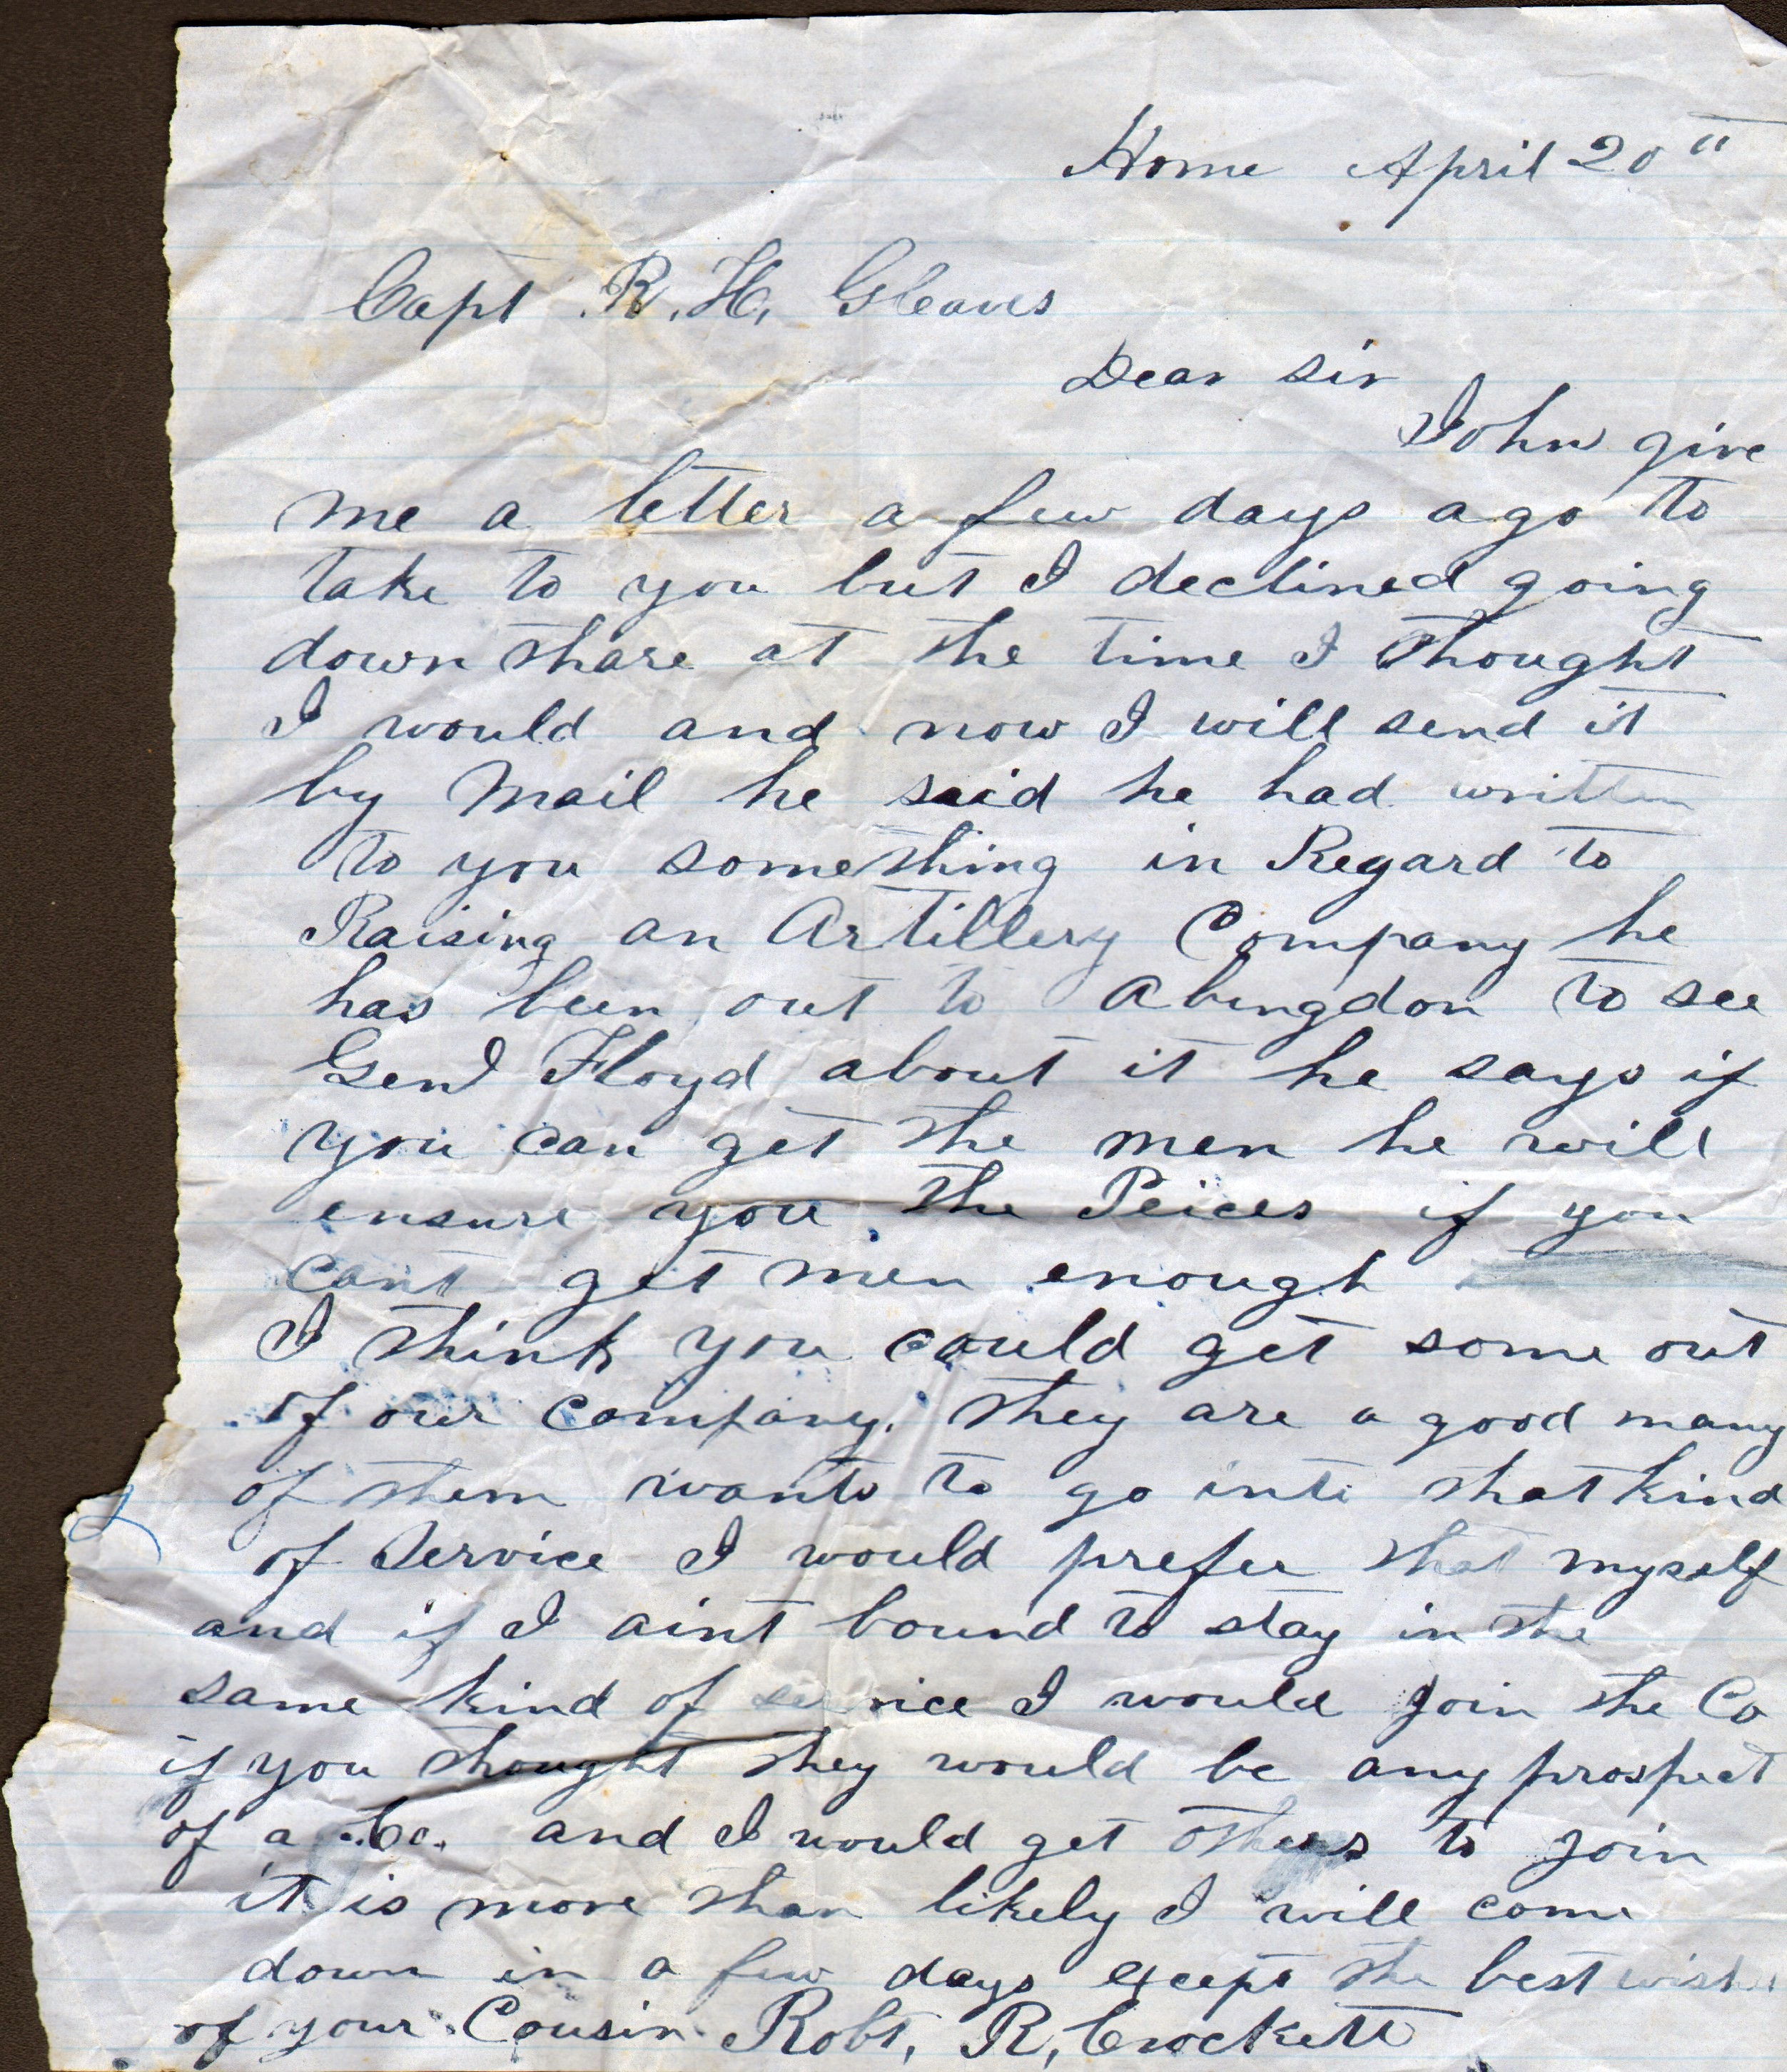 Home April 20"
Capt R. H. Gleaves
Dear Sir
John give
me a letter a few days ago to
take to you but I declined going
down thare at the time I thought
I would and now I will send it
by Mail he said he had written
to you something in Regard to
Raising an Artillery Company he
has been out to Abingdon to see
Genl Floyd about it he says if
you can get the men he will
ensure you the Peices if you
cant get men enough
I think you could get some out
of our company. they are a good many
of them wants to go into that kind
of Service I would prefer that myself
and if I aint bound to stay in the
same kind of service I would Join the Co
if you thought they would be any prospect
of a Co. and I would get others to Join
it is more than likely I will come
down in a few days except the best wishes
of your Cousin Robt, R, Crockett